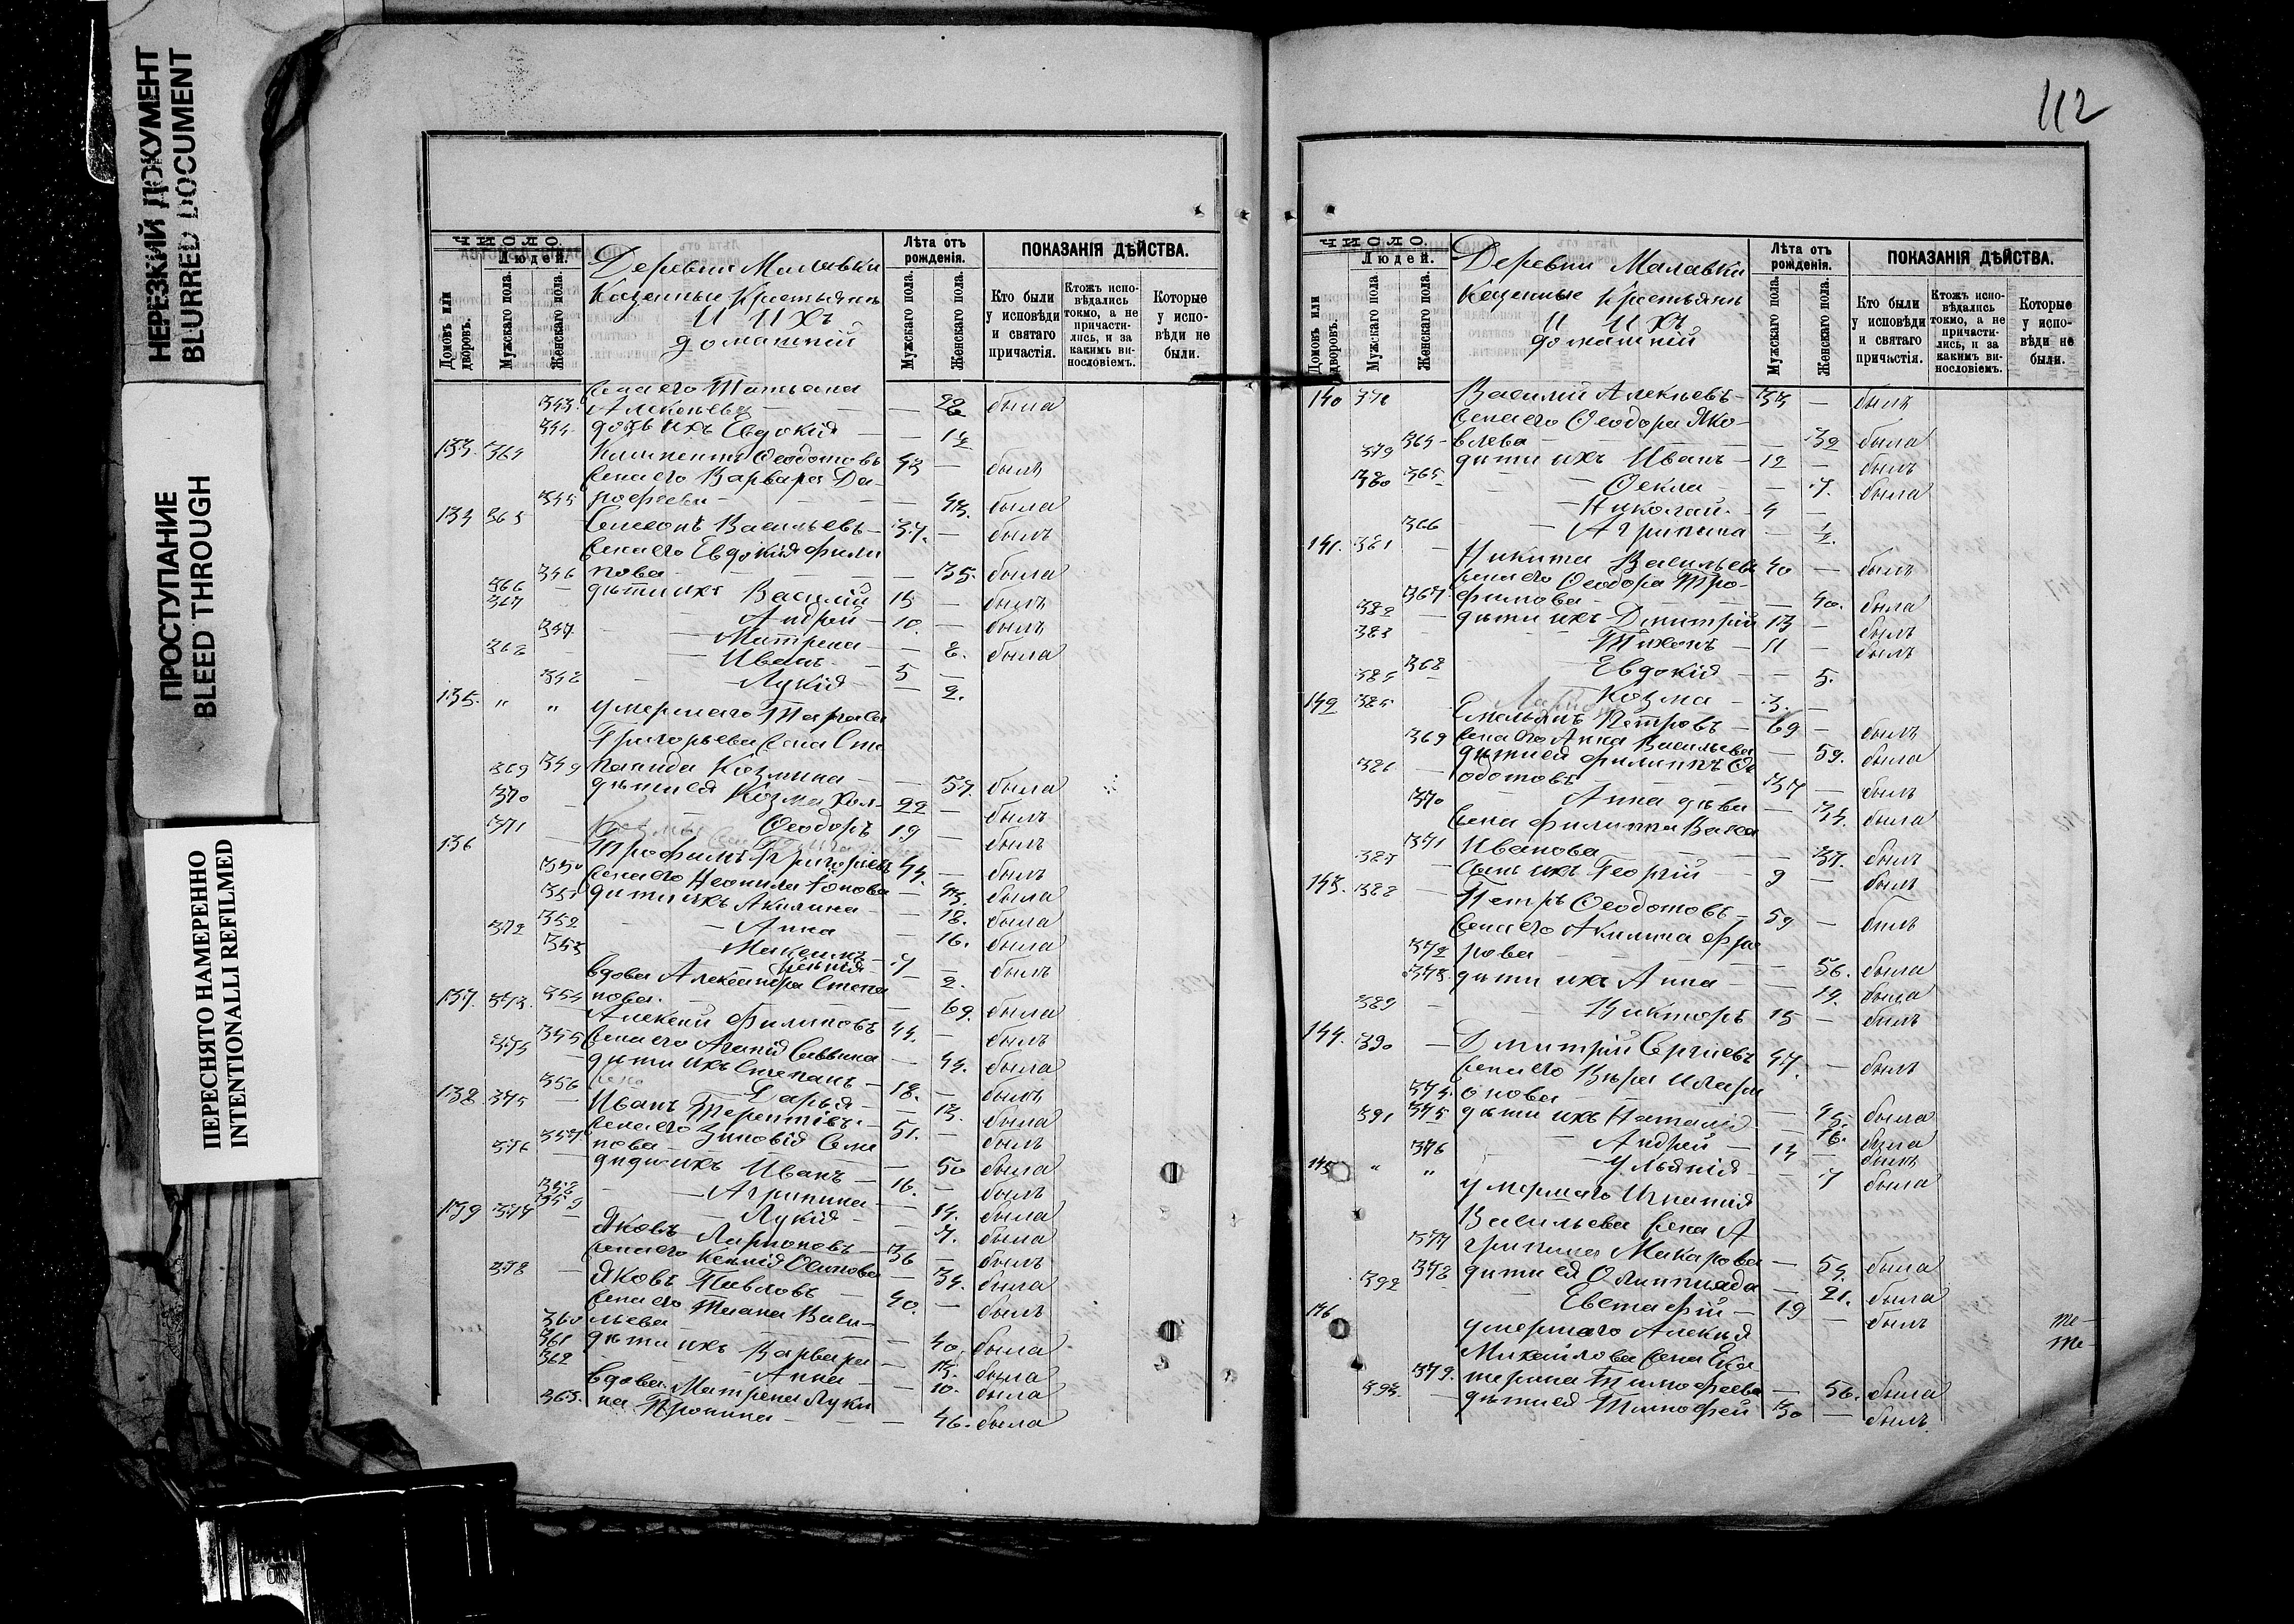 НЕРЕЗКИЙ ДОКУМЕНТ
BLURRED DOCUMENT
ПРОСТУПАНИЕ
BLEED THROUGH
ПЕРЕСНЯТО НАМЕРЕННО
INTENTIONALLI REFILMED
ЧИСЛО.
Людей.
Домовъ или дворовъ.
Мужскаго пола.
Женскаго пола.
Деревни Малавки
Казенные Крестьяне
И Ихъ
домашній
Лѣта отъ рожденія.
Мужскаго пола.
Женскаго пола.
ПОКАЗАНІЯ ДѢЙСТВА.
Кто были у исповѣди и святаго причастія.
Ктожъ испо-вѣдались токмо, а не причасти-лись, и за какимъ ви-нословіемъ.
Которые у испо-вѣди не были.
жена его Татьана
343. Алексѣева — 22 была
344 дочь ихъ Евдокія — 1½
133. 364 Климентъ Ѳеодотовъ 43 — былъ
жена его Варвара До-
345 рофеева — 43. была
134 365 Симеонъ Васильевъ 37. — былъ
жена его Евдокія Фили
346 пова — 35. была
366 дѣти ихъ Василій 15 — былъ
367 Андрей 10. — былъ
347. Матрена — 8. была
368 Иванъ 5 —
348 Лукія — 2.
135. " " умершаго Тарасія
Григорьева жена Сте
349 панида Козмина — 57. была
369 дѣти ея Козма Хол- 22 — былъ
370 Ѳеодоръ 19 — былъ
136 371 Трофимъ Григорьевъ 44. — былъ
350 жена его Неонила — 43. была
351 дѣти ихъ Акилина — 18. была
352 Анна — 16. была
372 Максимъ 7 — былъ
353 Ксенія — 2.
вдова Александра Степа
354 нова. — 69. была
137. 373. Алексей Филиповъ 44. — былъ
355 жена его Агапія Саввина — 44. была
374 дѣти ихъ Степанъ 18. — былъ
356 Дарья — 13. была
138 375 Иванъ Терентіевъ 51. — былъ
жена его Зиновія Семе
357 нова — 50 была
376 дѣти ихъ Иванъ 16. — былъ
358 Агрипина — 14. была
359 Лукія — 7. была
139 377 Яковъ Ларионовъ 36 — былъ
жена его Ксенія Осипова — 34. была
378 Яковъ Павловъ 40. — былъ
жена его Татіана Васи-
360 льева — 40. была
361 дѣти ихъ Варвара — 13. была
362 Анна — 10. была
вдова Матрена Луки
363. на Пронина — 46. была
112
ЧИСЛО.
Людей.
Домовъ или дворовъ.
Мужскаго пола.
Женскаго пола.
Деревни Малавки
Казенные Крестьяне
И Ихъ
домашній
Лѣта отъ рожденія.
Мужскаго пола.
Женскаго пола.
ПОКАЗАНІЯ ДѢЙСТВА.
Кто были у исповѣди и святаго причастія.
Ктожъ испо-вѣдались токмо, а не причасти-лись, и за какимъ ви-нословіемъ.
Которые у испо-вѣди не были.
140 378 Василій Алексѣевъ 33 — былъ
жена его Ѳеодора Яко-
364 влева — 32 была
379 дѣти ихъ Иванъ 12 — былъ
365 Ѳекла — 7. была
380 Николай 4 —
366 Агрипина — ½.
141. 381 Никита Васильевъ 40 — былъ
жена его Ѳеодора Тро-
367 фимова — 40. была
382 дѣти ихъ Димитрій 13 — былъ
383 Тихонъ 11 — былъ
368 Евдокія — 5.
384 Козма 3. —
142 385 Емельянъ Петровъ 69 — былъ
369 жена его Анна Васильева — 59. была
386 дѣти ея Филиппъ Ѳе
одотовъ 37 — былъ
370 Анна дѣва — 34. была
жена Филиппа Васса
371 Иванова — 37. была
387 сынъ ихъ Георгій 9 — былъ
143. 388 Петръ Ѳеодотовъ 59 — былъ
жена его Акилина Фро
372 рова — 56. была
373. дѣти ихъ Анна — 19. была
389 Викторъ 15 — былъ
144. 390 Димитрій Сергіевъ 47. — былъ
жена его Вѣра Илари
374. онова — 45. была
375 дѣти ихъ Наталія — 16. была
391 Андрей 14 — былъ
376 Ульянія — 7 была
145 " " умершаго Игнатія
Васильева жена А
377 грипина Макарова — 54. была
378 дѣти ея Олимпіада — 21. была
392 Евстафій 19 — былъ
146 умершаго Алексѣя
Михайлова жена Ека
379. терина Тимофеева — 56. была
393. дѣти ея Тимофей 30 — былъ